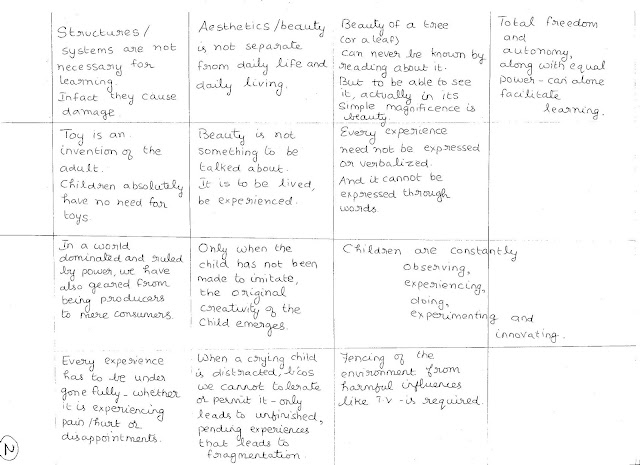 Structures/
systems are not
necessary for
learning.
Infact they cause
damage
Aesthetics/beauty
is not separate
from daily life and
daily living.
Beauty of a tree
(or a leaf)
can never be known by
reading about it.
But to be able to see
it, actually in its
simple magnificence is
beauty.
Total freedom
and
autonomy,
along with equal
power - can alone
facilitate
learning.
Toy is an
invention of the
adult.
Children absolutely
have no need for
toys.
Beauty is not
something to be
talked about.
It is to be lived,
be experienced.
Every experience
need not be expressed
or verbalized.
And it cannot be
expressed through
words.
In a world
dominated and ruled
by power, we have
also geared from
being producers
to mere consumers.
Only when the
child has not been
made to imitate,
the original
creativity of the
Child emerges.
Children are constantly
observing,
experiencing,
doing,
experimenting and
innovating.
Every experience
has to be under
gone fully - whether
it is experiencing
pain/hurt or
disappointments.
When a crying child
is distracted, b'cos
we cannot tolerate
or permit it - only
leads to unfinished,
pending experiences
that leads to
fragmentation.
Fencing of the
environment from
harmful influences
like T.V - is required.
2